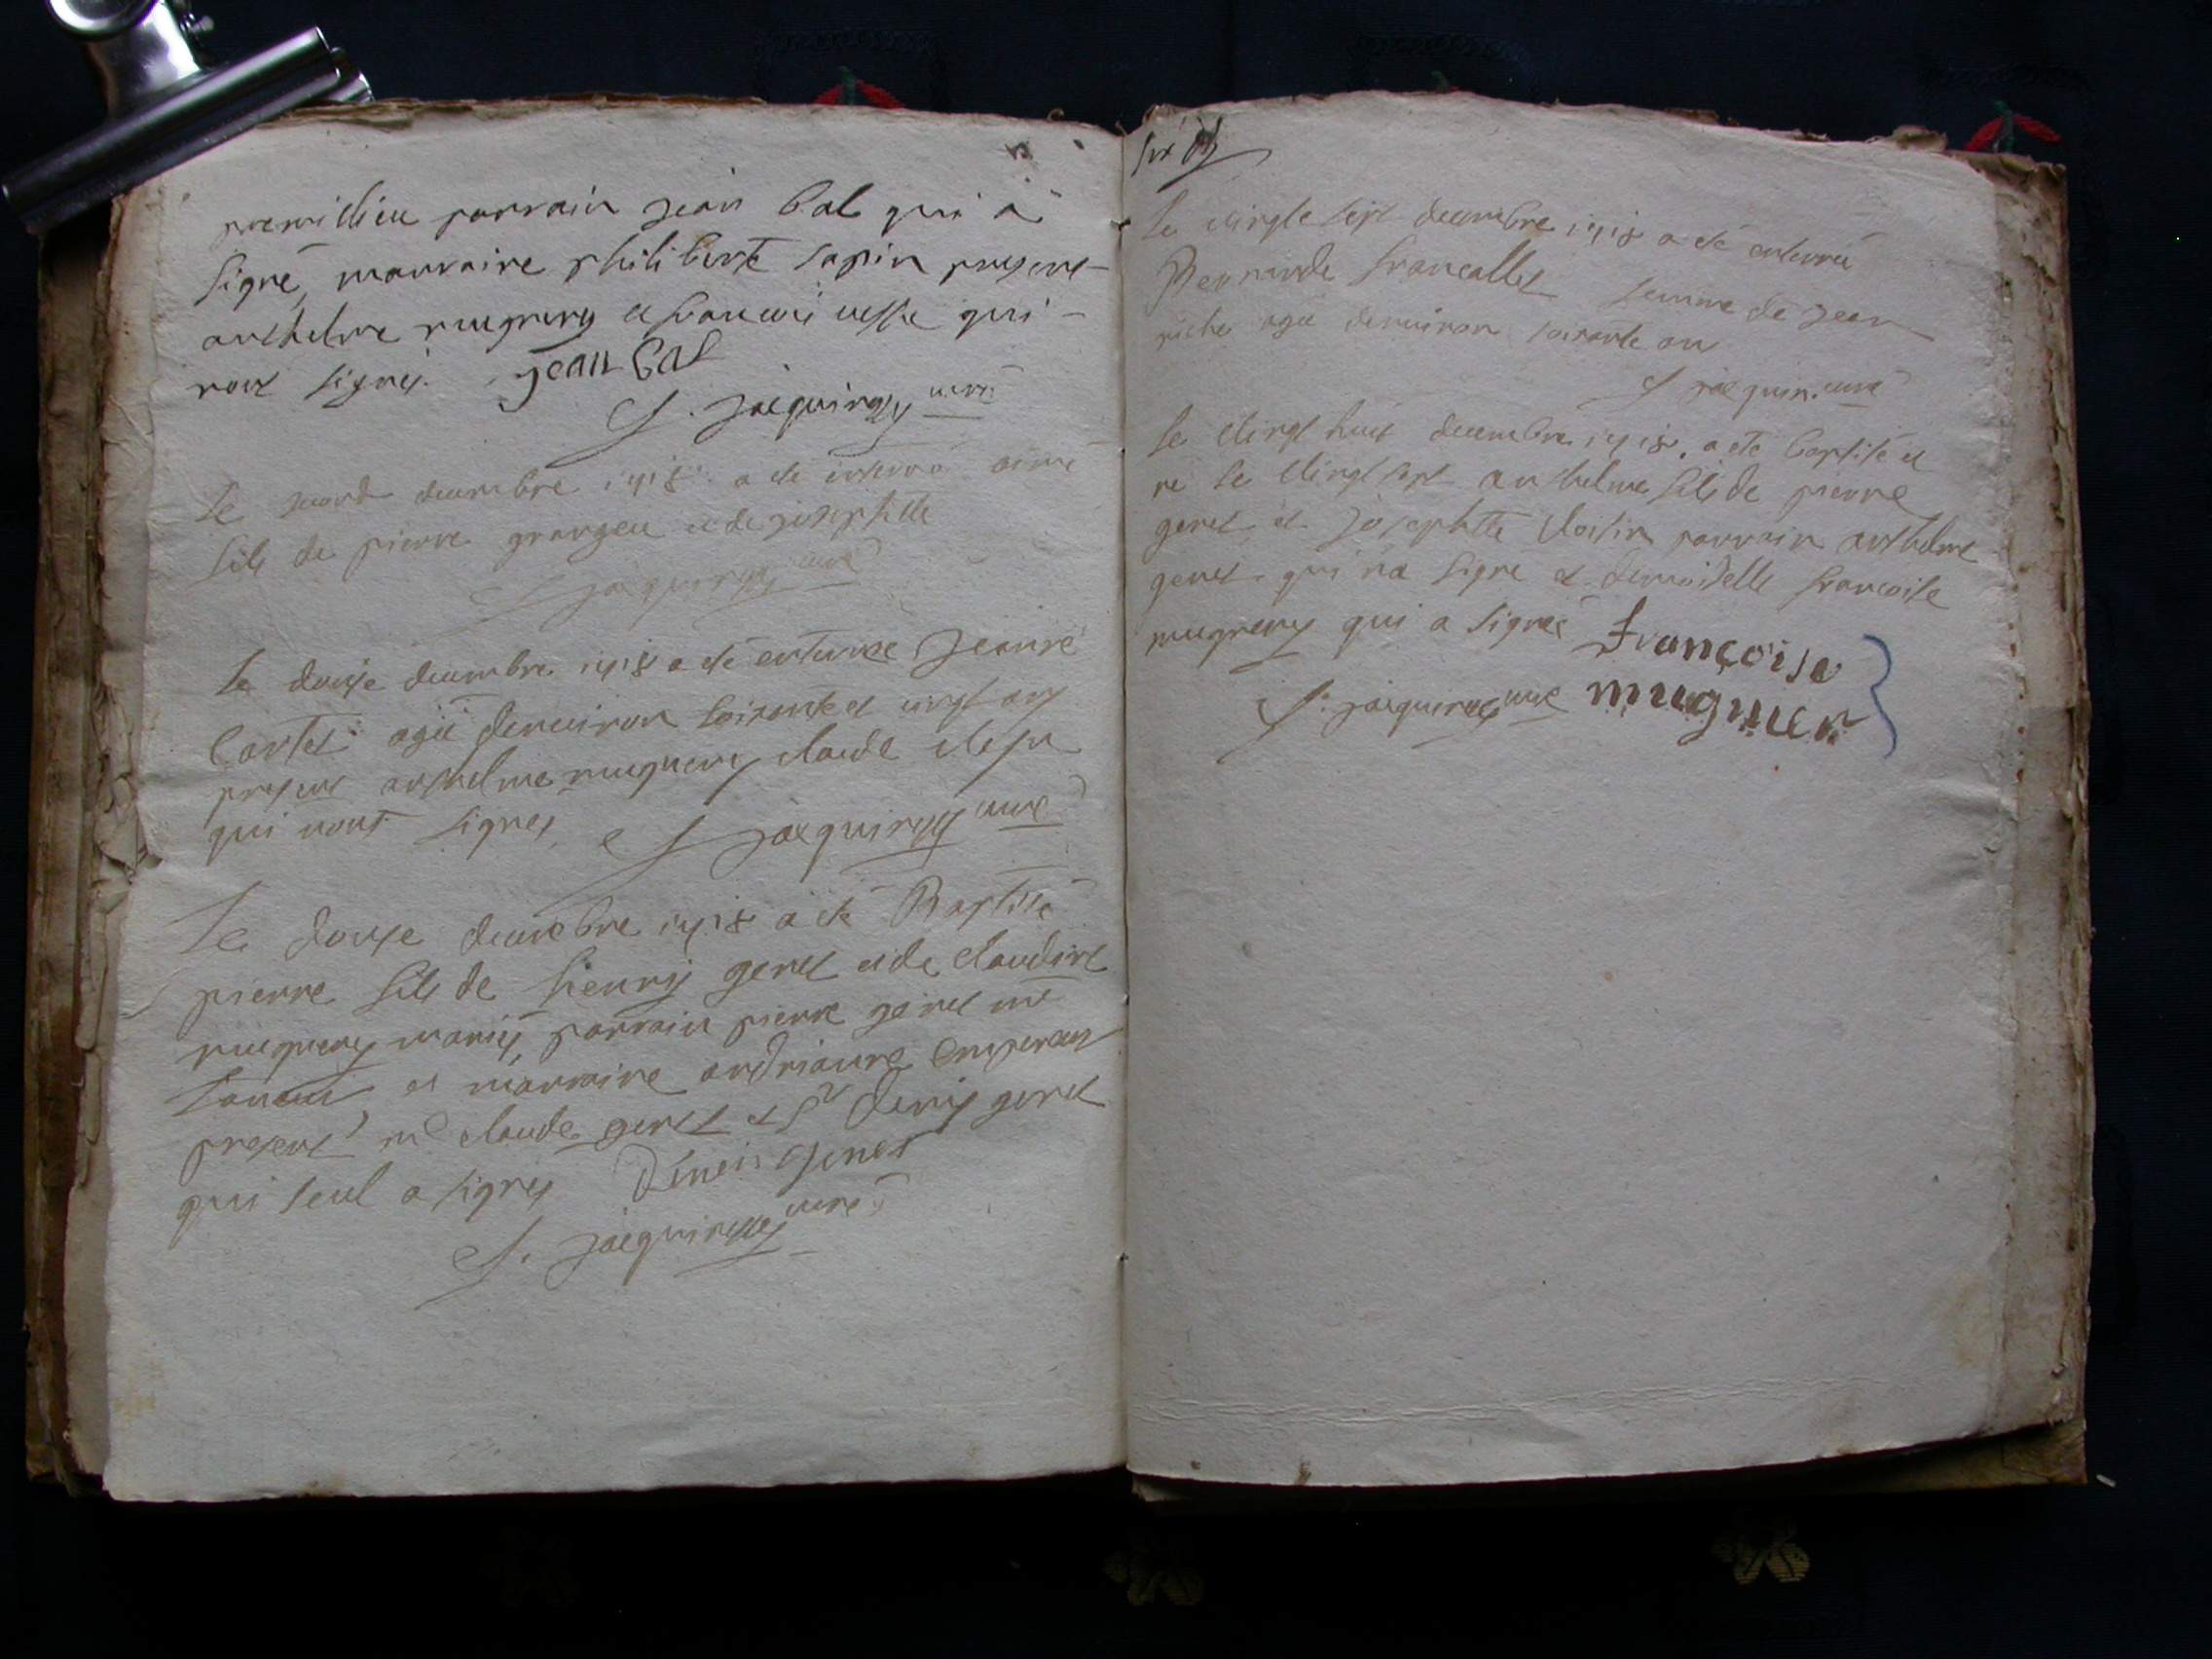 premillieu parrain jean bal qui a
signé, marraine philiberte sapin present
anthelme mugnery et francois qui
nont signés. jean bal
J. jacquin curé
Le second decembre 1718 a ete enterré aimé
fils de pierre grangeu et de josephtte
J jacquin curé
Le douze decembre 1718 a eté enterree jeanne
agée denuiron soixante et vingt ans
present anthelme mugnery claude
qui nont signes J jacquin curé
Le douze decembre 1718 a eté Baptisé
pierre fils de hienry genet et de claudine
mugnery mariés, parrain pierre genet me
et marraine andrianne empereur
present me claude genet et sr denis genet
qui seul a signes Denis genet
J. jacquin curé
six
Le vingte sept decembre 1718 a eté enterreé
Bernarde francallet femme de jean
agée denuiron soixante ans
J jacquin curé
Le vingt huit decembre 1718. a eté baptisé et
né le vingt sept anthelme fils de pierre
genet et josephtte Voisin parrain anthelme
genet qui na signe et demoiselle francoise
mugnery qui a signée françoise
J. jacquin curé mugnier